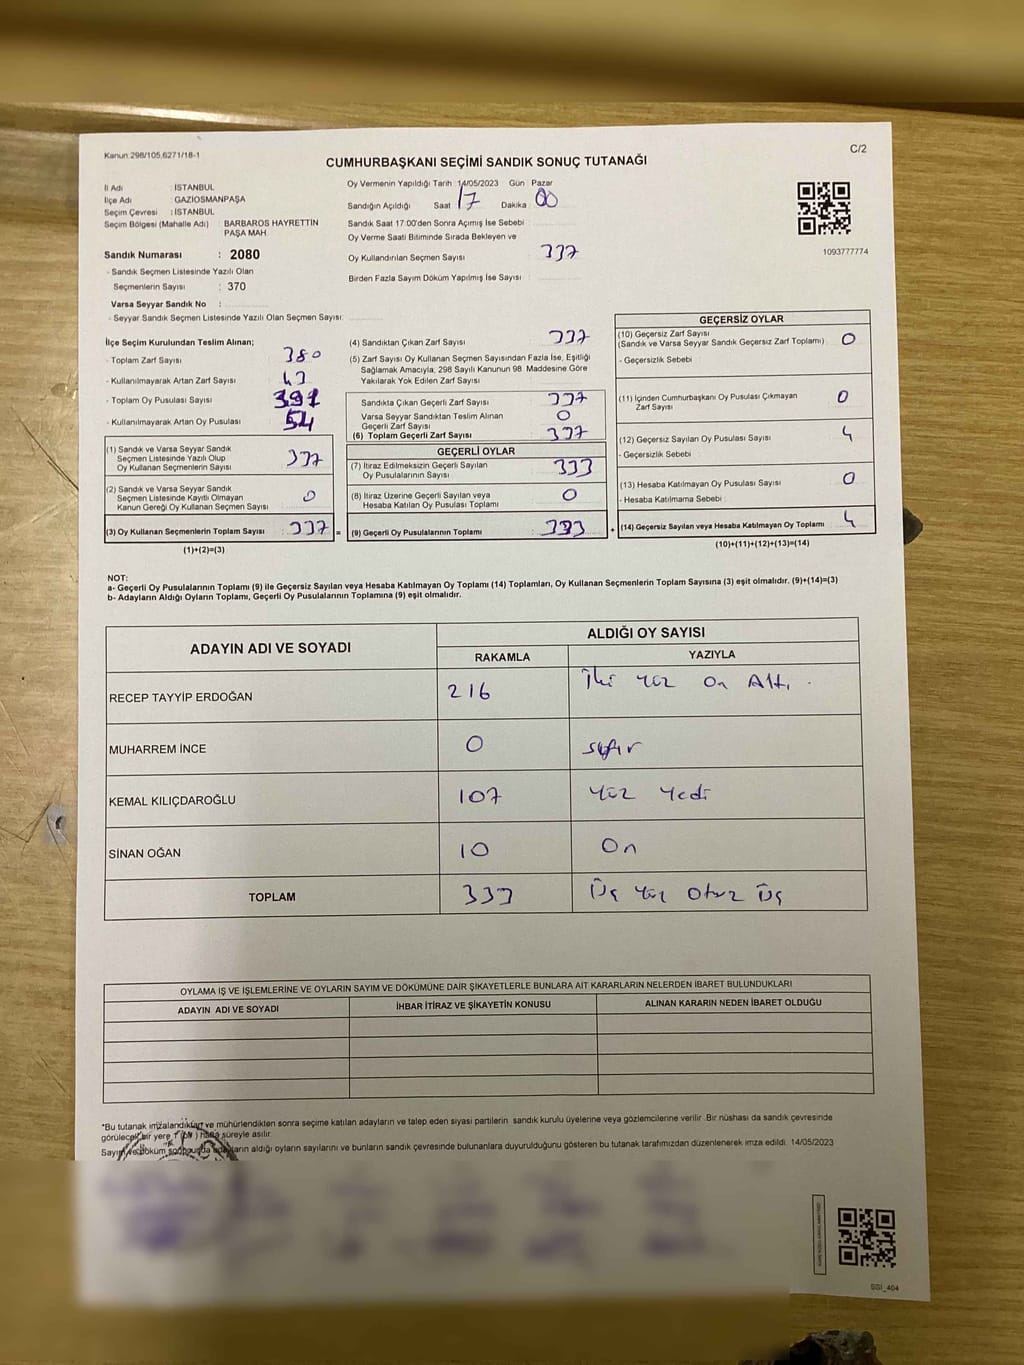 Kanun:298/105,6271/18-1
C/2
CUMHURBAŞKANI SEÇİMİ SANDIK SONUÇ TUTANAĞI
İl Adı : İSTANBUL
İlçe Adı : GAZİOSMANPAŞA
Seçim Çevresi : İSTANBUL
Seçim Bölgesi (Mahalle Adı) : BARBAROS HAYRETTİN PAŞA MAH.
Sandık Numarası : 2080
- Sandık Seçmen Listesinde Yazılı Olan
Seçmenlerin Sayısı : 370
Varsa Seyyar Sandık No :
- Seyyar Sandık Seçmen Listesinde Yazılı Olan Seçmen Sayısı:
Oy Vermenin Yapıldığı Tarih : 14/05/2023 Gün : Pazar
Sandığın Açıldığı Saat 17 Dakika : 00
Sandık Saat 17:00'den Sonra Açımış İse Sebebi :
Oy Verme Saati Bitiminde Sırada Bekleyen ve
Oy Kullandırılan Seçmen Sayısı : 337
Birden Fazla Sayım Döküm Yapılmış İse Sayısı :
1093777774
İlçe Seçim Kurulundan Teslim Alınan;
- Toplam Zarf Sayısı : 380
- Kullanılmayarak Artan Zarf Sayısı : 43
- Toplam Oy Pusulası Sayısı : 391
- Kullanılmayarak Artan Oy Pusulası : 54
(1) Sandık ve Varsa Seyyar Sandık
Seçmen Listesinde Yazılı Olup
Oy Kullanan Seçmenlerin Sayısı : 337
(2) Sandık ve Varsa Seyyar Sandık
Seçmen Listesinde Kayıtlı Olmayan
Kanun Gereği Oy Kullanan Seçmen Sayısı : 0
(3) Oy Kullanan Seçmenlerin Toplam Sayısı : 337 =
(1)+(2)=(3)
(4) Sandıktan Çıkan Zarf Sayısı : 337
(5) Zarf Sayısı Oy Kullanan Seçmen Sayısından Fazla İse, Eşitliği
Sağlamak Amacıyla, 298 Sayılı Kanunun 98. Maddesine Göre
Yakılarak Yok Edilen Zarf Sayısı :
Sandıkta Çıkan Geçerli Zarf Sayısı : 337
Varsa Seyyar Sandıktan Teslim Alınan
Geçerli Zarf Sayısı : 0
(6) Toplam Geçerli Zarf Sayısı : 337
GEÇERLİ OYLAR
(7) İtiraz Edilmeksizin Geçerli Sayılan
Oy Pusulalarının Sayısı : 333
(8) İtiraz Üzerine Geçerli Sayılan veya
Hesaba Katılan Oy Pusulası Toplamı : 0
(9) Geçerli Oy Pusulalarının Toplamı : 333 +
GEÇERSİZ OYLAR
(10) Geçersiz Zarf Sayısı
(Sandık ve Varsa Seyyar Sandık Geçersiz Zarf Toplamı) : 0
- Geçersizlik Sebebi
(11) İçinden Cumhurbaşkanı Oy Pusulası Çıkmayan
Zarf Sayısı : 0
(12) Geçersiz Sayılan Oy Pusulası Sayısı : 4
- Geçersizlik Sebebi
(13) Hesaba Katılmayan Oy Pusulası Sayısı : 0
- Hesaba Katılmama Sebebi :
(14) Geçersiz Sayılan veya Hesaba Katılmayan Oy Toplamı : 4
(10)+(11)+(12)+(13)=(14)
NOT:
a- Geçerli Oy Pusulalarının Toplamı (9) ile Geçersiz Sayılan veya Hesaba Katılmayan Oy Toplamı (14) Toplamları, Oy Kullanan Seçmenlerin Toplam Sayısına (3) eşit olmalıdır. (9)+(14)=(3)
b- Adayların Aldığı Oyların Toplamı, Geçerli Oy Pusulalarının Toplamına (9) eşit olmalıdır.
ADAYIN ADI VE SOYADI
ALDIĞI OY SAYISI
RAKAMLA YAZIYLA
RECEP TAYYİP ERDOĞAN 216 İki yüz On Altı .
MUHARREM İNCE 0 sıfır
KEMAL KILIÇDAROĞLU 107 Yüz Yedi
SİNAN OĞAN 10 On
TOPLAM 333 Üç Yüz Otuz Üç
OYLAMA İŞ VE İŞLEMLERİNE VE OYLARIN SAYIM VE DÖKÜMÜNE DAİR ŞİKAYETLERLE BUNLARA AİT KARARLARIN NELERDEN İBARET BULUNDUKLARI
ADAYIN ADI VE SOYADI İHBAR İTİRAZ VE ŞİKAYETİN KONUSU ALINAN KARARIN NEDEN İBARET OLDUĞU
*Bu tutanak imzalandıktan ve mühürlendikten sonra seçime katılan adayların ve talep eden siyasi partilerin sandık kurulu üyelerine veya gözlemcilerine verilir. Bir nüshası da sandık çevresinde
görülecek bir yere 1 (bir) hafta süreyle asılır.
Sayım ve döküm sonucunda adayların aldığı oyların sayılarını ve bunların sandık çevresinde bulunanlara duyurulduğunu gösteren bu tutanak tarafımızdan düzenlenerek imza edildi. 14/05/2023
SSI_404